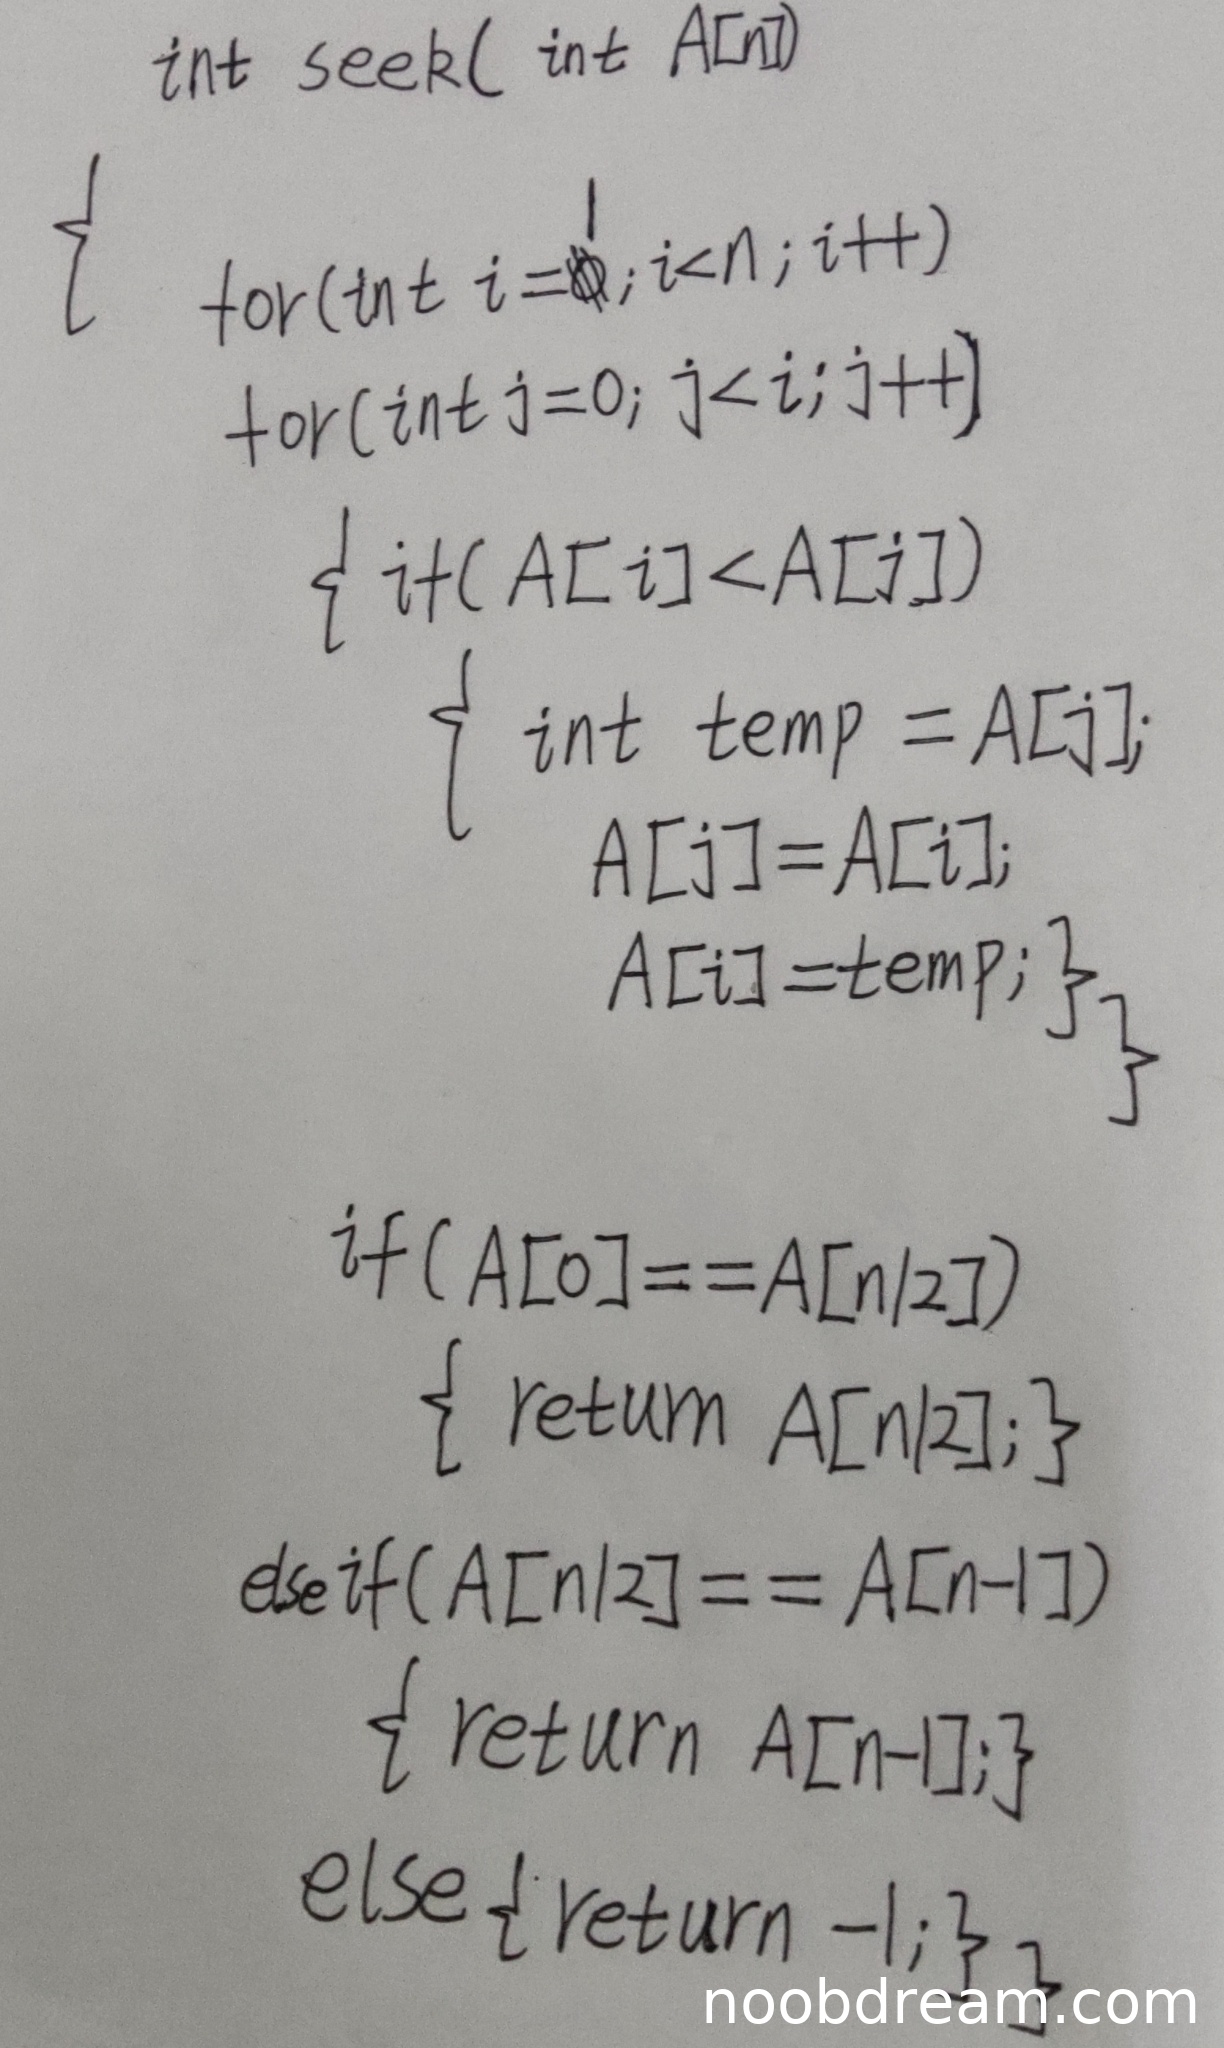 int seek( int A[n])
{
1
for(int i=0;i<n;i++)
for(int j=0; j<i;j++)
{ if(A[i]<A[j])
{ int temp =A[j];
A[j]=A[i];
A[i]=temp;}
}
if(A[0]==A[n/2])
{ return A[n/2];}
else if(A[n/2]==A[n-1])
{return A[n-1];}
else{return -1;}}
noobdream.com